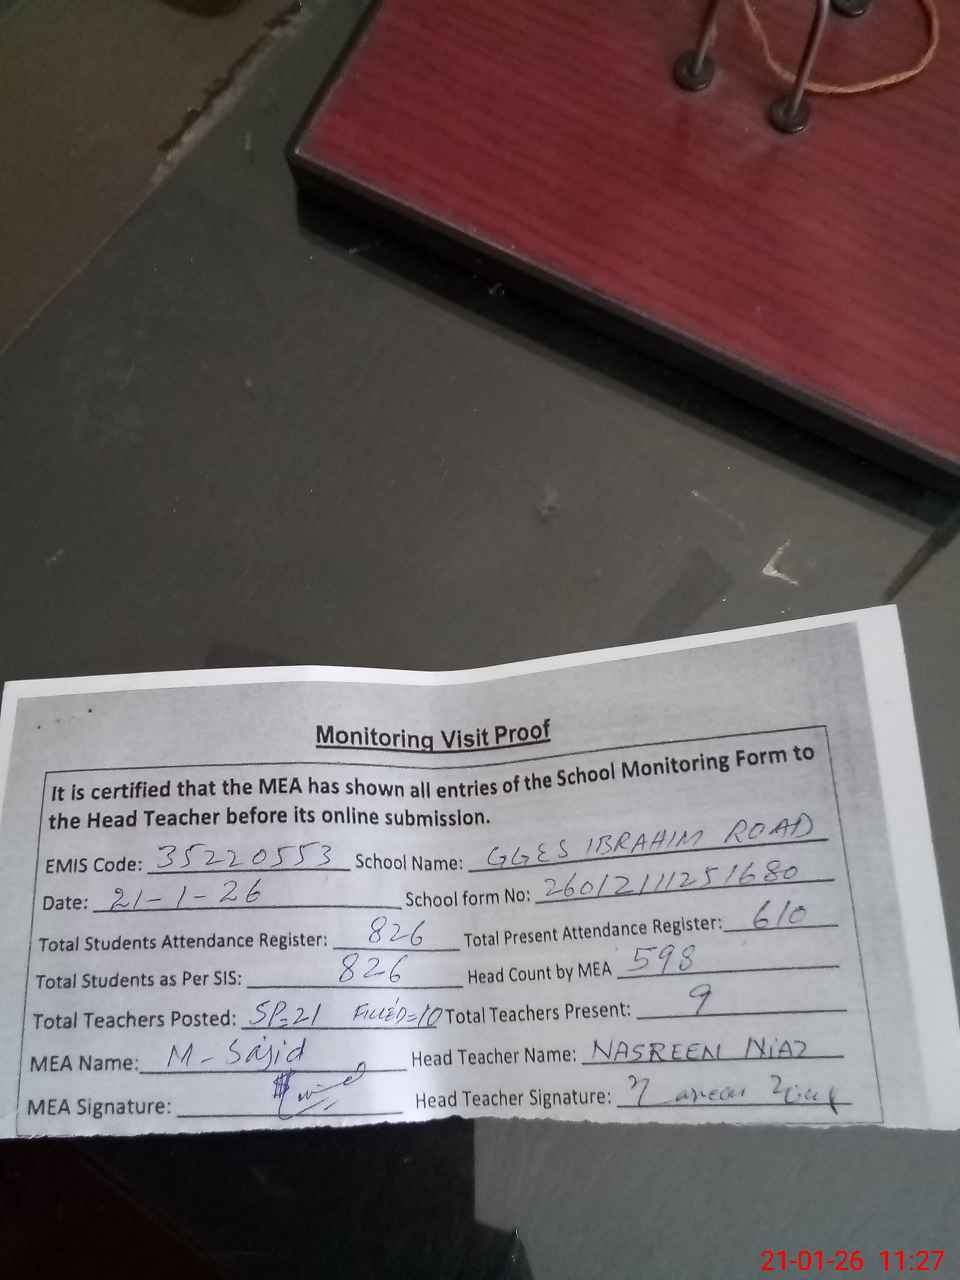 Monitoring Visit Proof
It is certified that the MEA has shown all entries of the School Monitoring Form to
the Head Teacher before its online submission.
EMIS Code: 35220553 School Name: GGES IBRAHIM ROAD
Date: 21-1-26 School form No: 260121111251680
Total Students Attendance Register: 826 Total Present Attendance Register: 610
Total Students as Per SIS: 826 Head Count by MEA 598
Total Teachers Posted: SP=21 FILLED=10 Total Teachers Present: 9
MEA Name: M-Sajid Head Teacher Name: NASREEN NIAZ
MEA Signature: Head Teacher Signature:
21-01-26 11:27